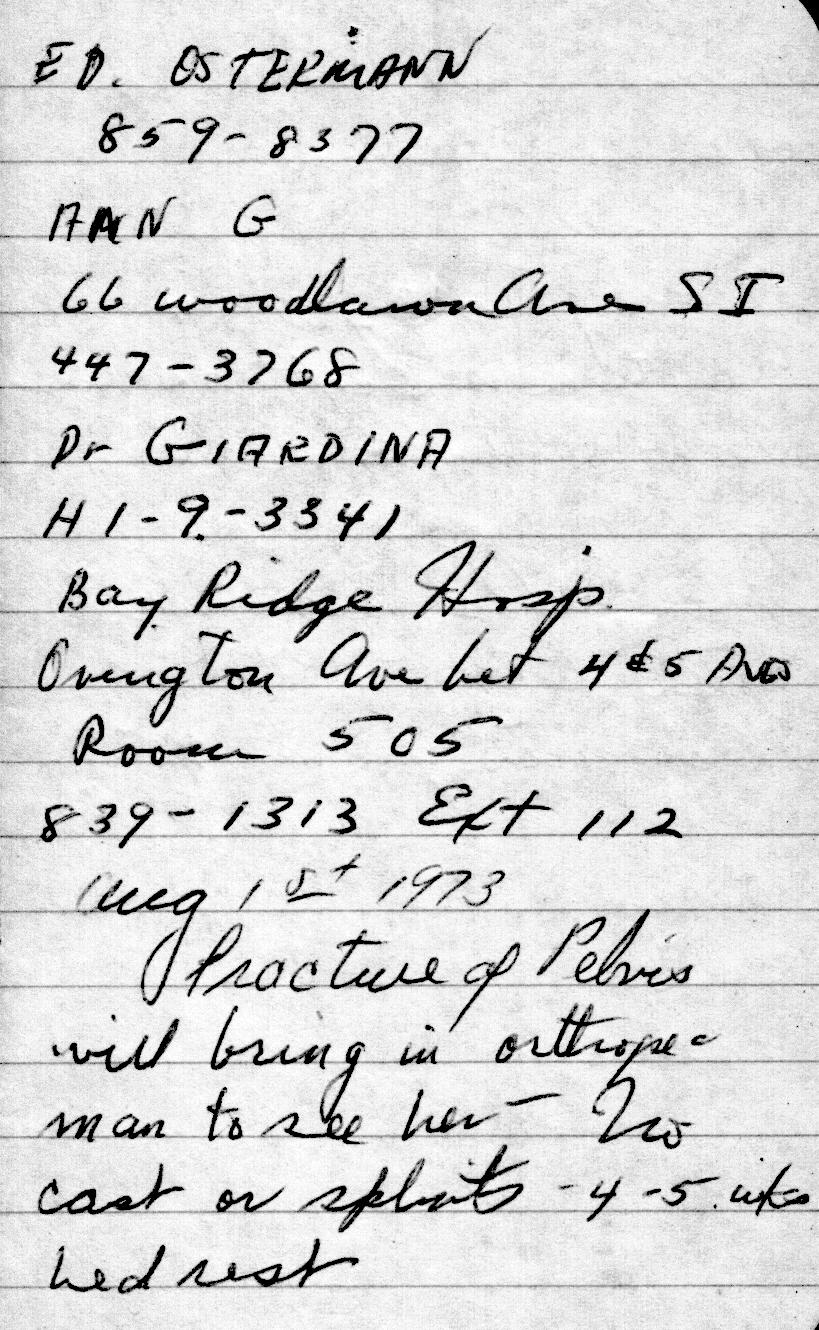 ED. OSTERMANN
859-8377
ANN G
66 Woodlawn Ave S I
447-3768
Dr GIARDINA
HI-9-3341
Bay Ridge Hosp.
Ovington Ave bet 4 & 5 Aves
Room 505
839-1313 Ext 112
Aug 1st 1973
Fracture of Pelvis
will bring in orthope-
man to see her - No
cast or splints - 4-5 wks
bed rest